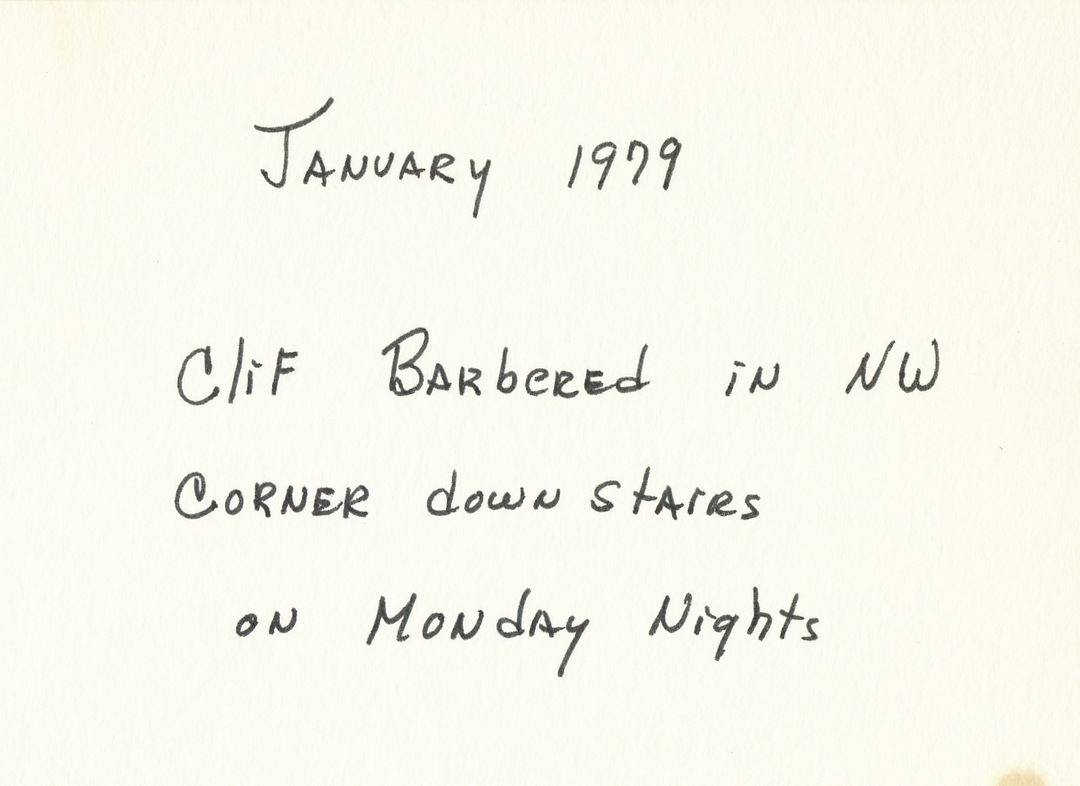 January 1979
Clif Barbered in NW
Corner down stairs
on Monday Nights